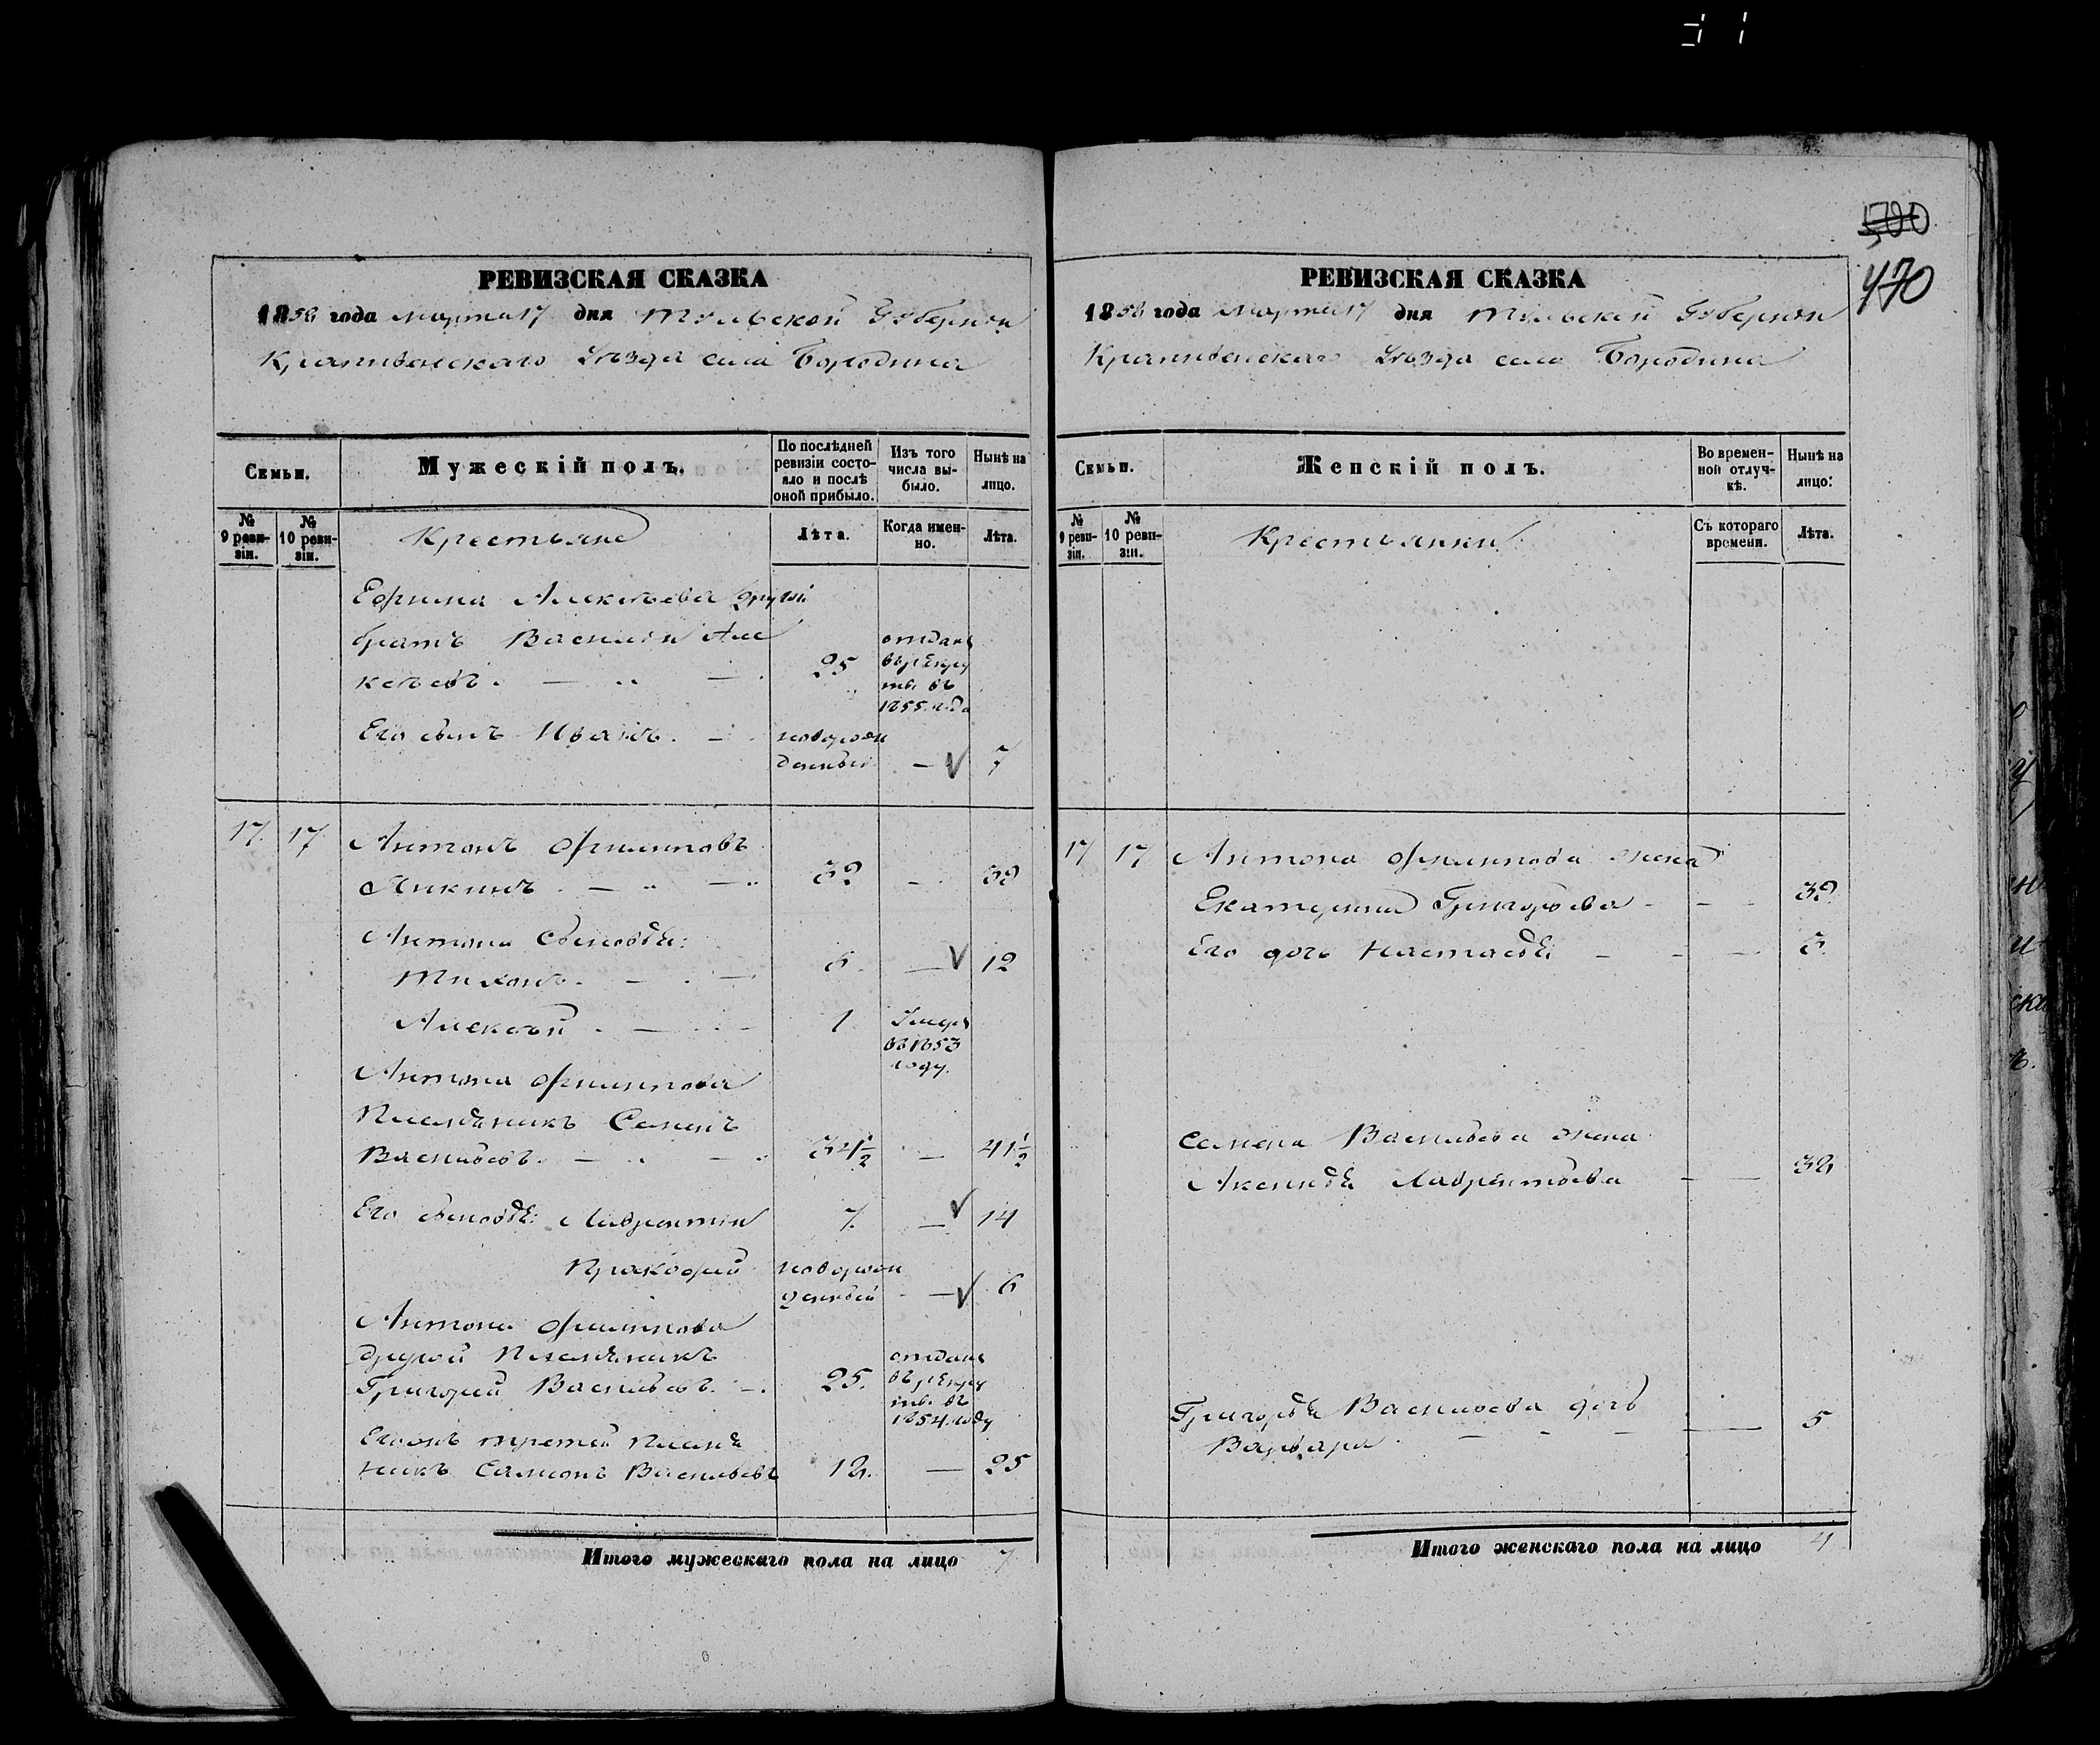 500
470
РЕВИЗСКАЯ СКАЗКА
1858 года марта 17 дня Тульской Губернии
Крапивенскаго Уѣзда села Бородина
Семьи.
Мужескій полъ.
По послѣдней ревизіи состояло и послѣ оной прибыло.
Изъ того числа выбыло.
Нынѣ на лицо.
№ 9 ревизіи.
№ 10 ревизіи.
Крестьяне
Лѣта.
Когда именно.
Лѣта.
Ефима Алексѣева другой
братъ Василій Але
ксѣевъ. 25 отданъ въ рекруты въ 1855 года
Его сынъ Иванъ. новорожденный — 7
17. 17 Антонъ Филиповъ
Аникинъ 32 — 39
Антона Сыновья:
Тихонъ. 5. — 12
Алексѣй 1 Умеръ въ 1853 году.
Антона Филипова
Племяникъ Семенъ
Васильевъ. 34½ — 41½
Его сыновья: Лаврентій 7. — 14
Прокофий новорожденный — 6
Антона Филипова
другой Племяникъ
Григорий Васильевъ. 25. отданъ въ рекруты въ 1854 году
Его онъ третей Племя
никъ Самсонъ Васильевъ 18. — 25
Итого мужескаго пола на лицо 7
РЕВИЗСКАЯ СКАЗКА
1858 года марта 17 дня Тульской Губернии
Крапивенскаго Уѣзда села Бородина
Семьи.
Женскій полъ.
Во временной отлучкѣ.
Нынѣ на лицо.
№ 9 ревизіи.
№ 10 ревизіи.
Крестьянки
Съ котораго времени.
Лѣта.
17 17 Антона Филипова жена
Екатерина Григорьева 39
Его дочь Настасья 3
Семена Васильева жена
Аксинья Лаврентьева 38
Григорья Васильева дочь
Варвара 5
Итого женскаго пола на лицо 4